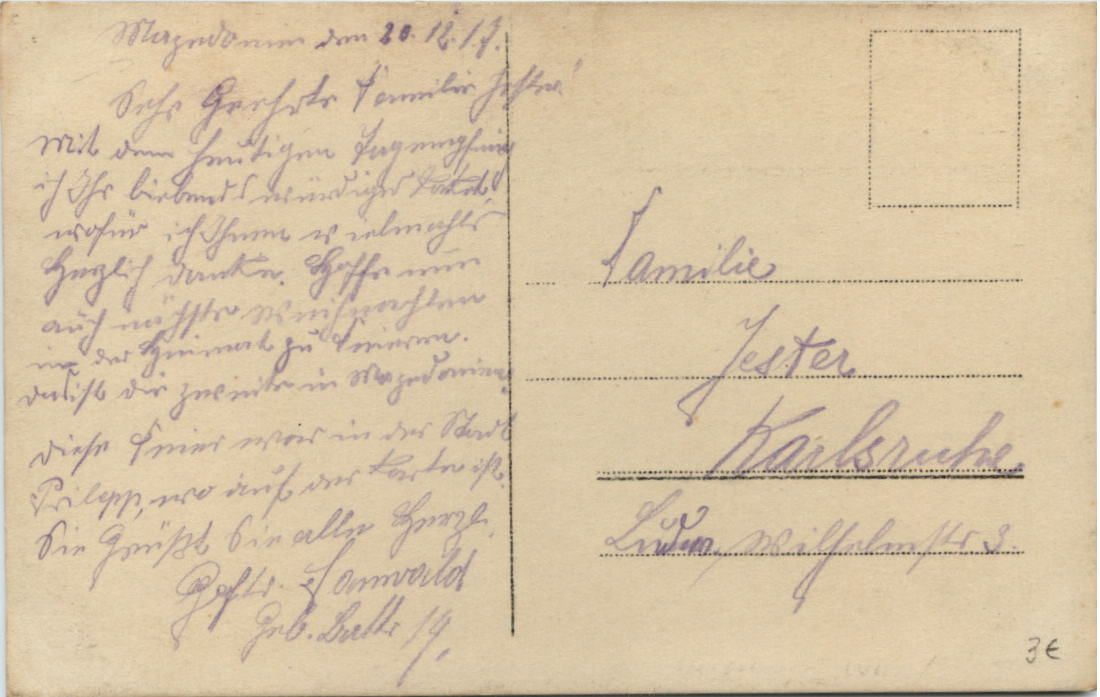 Mazedonien den 20.12.17.
Sehr Geehrte Familie Jester!
Mit dem heutigen Tag empfing
ich Ihr liebenswürdiges Paket
wofür ich Ihnen vielmahls
Herzlich danke. Hoffe nun
auch nächste Weihnachten
in der Heimat zu feiern.
das ist die zweite in Mazedonien.
Diese Feier war in der Stadt
Prilepp, wo auf der Karte ist.
Sie Grüßt Sie alle Herzl.
Geftr.
Geb. Battr 14.
Familie
Jester
Karlsruhe.
Ludw. Wilhelmstr 3.
3€